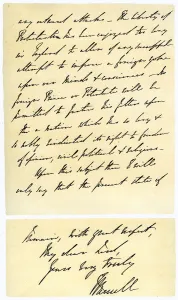 any external attacks. The liberty of
Protestantism has been enjoyed too long
in England to allow of any successful
attempt to impose a foreign yoke
upon our minds & consciences. No
foreign Prince or Potentate will be
permitted to fasten his fetters upon
a nation which has so long &
so nobly vindicated its right to freedom
of opinion, civil, political & religious.
Upon this subject then I will
only say that the present state of
I remain, with great respect,
My dear Lord,
Yours very truly
J Russell